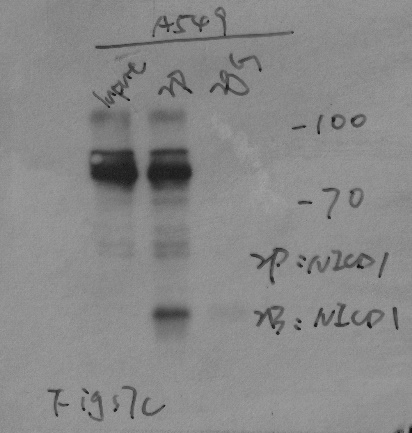 A549
Input IP IgG
-100
-70
IP:NICD1
IB:NICD1
Figs7c